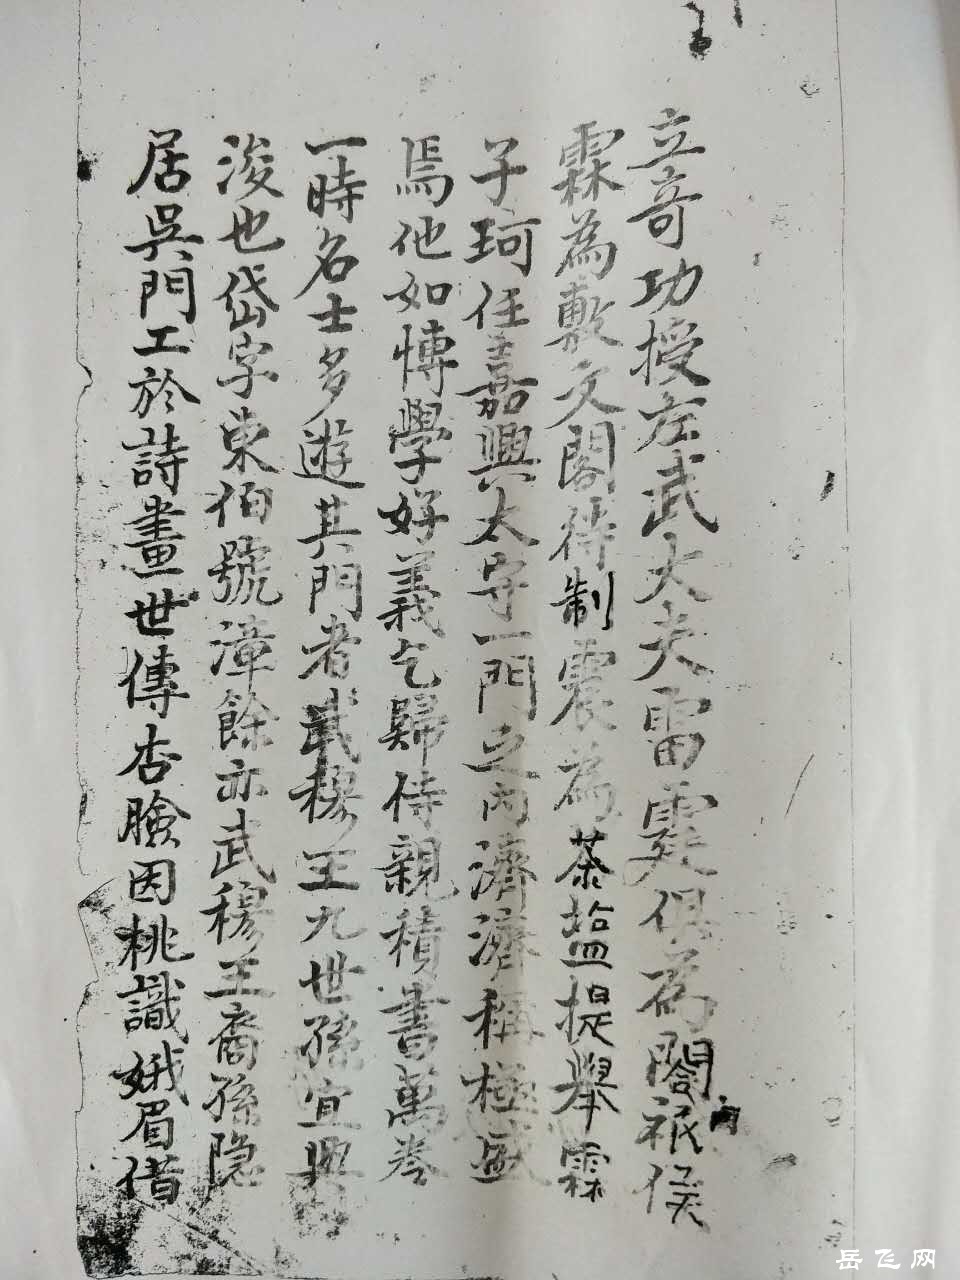 立奇功授左武大夫雷霆俱為閣祗侯
內
霖為敷文閣待制震為茶鹽提舉霖
子珂任嘉興太守一門之內濟濟稱極盛
焉他如慱學好義乞歸侍親積書萬卷
一時名士多遊其門者武穆王九世孫宜興
浚也岱字東伯號漳餘亦武穆王裔孫隐
居吳門工於詩畫世傳杏臉因桃識娥眉借
岳飞网